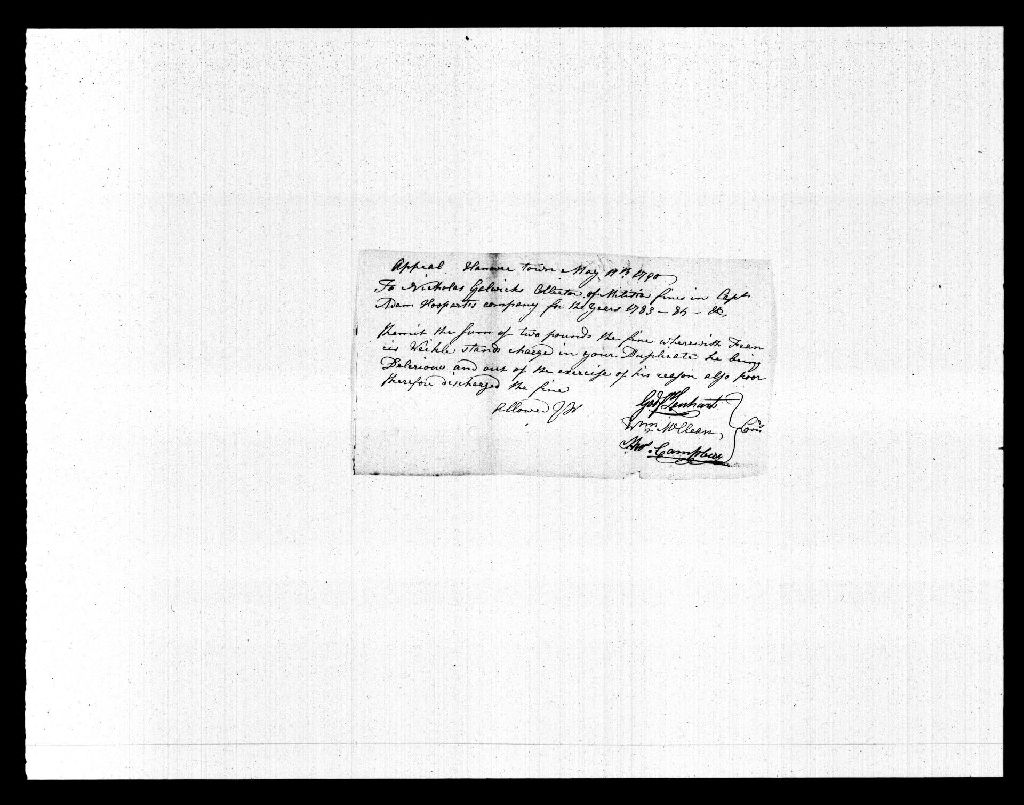 Appeal Hanover town May 19th 1790
To Nicholas Gelwicks Colletor of Militia fines in Capt
Adam Hooparts company for the years 1785 - 86 - &c.
Remit the sum of two pounds the fine wherewith Fran
cis Weikle stands charged in your Duplicate he being
Delerious and out of the exercise of his reason also poor
therefore discharged the fine
allowed
Godfy Lenhart
Wm McClean
Thos. Campbell
Comrs